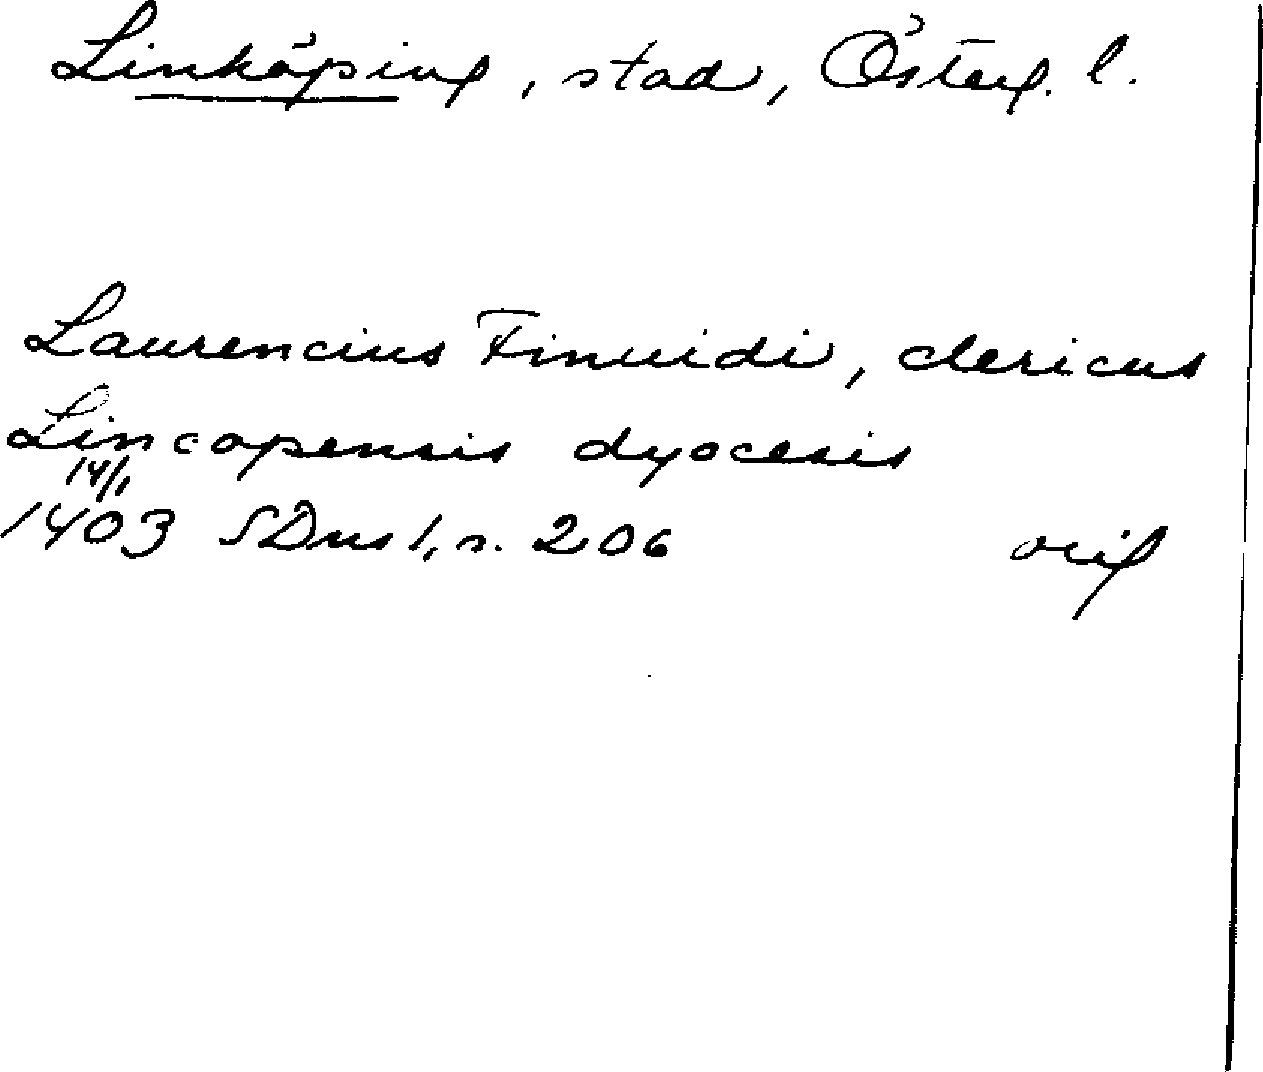 Linköping, stad, Österg. l.
Laurencius Finuidi, clericus
Lincopensis dyocesis
14/1
1403 SDns 1, s. 206 orig